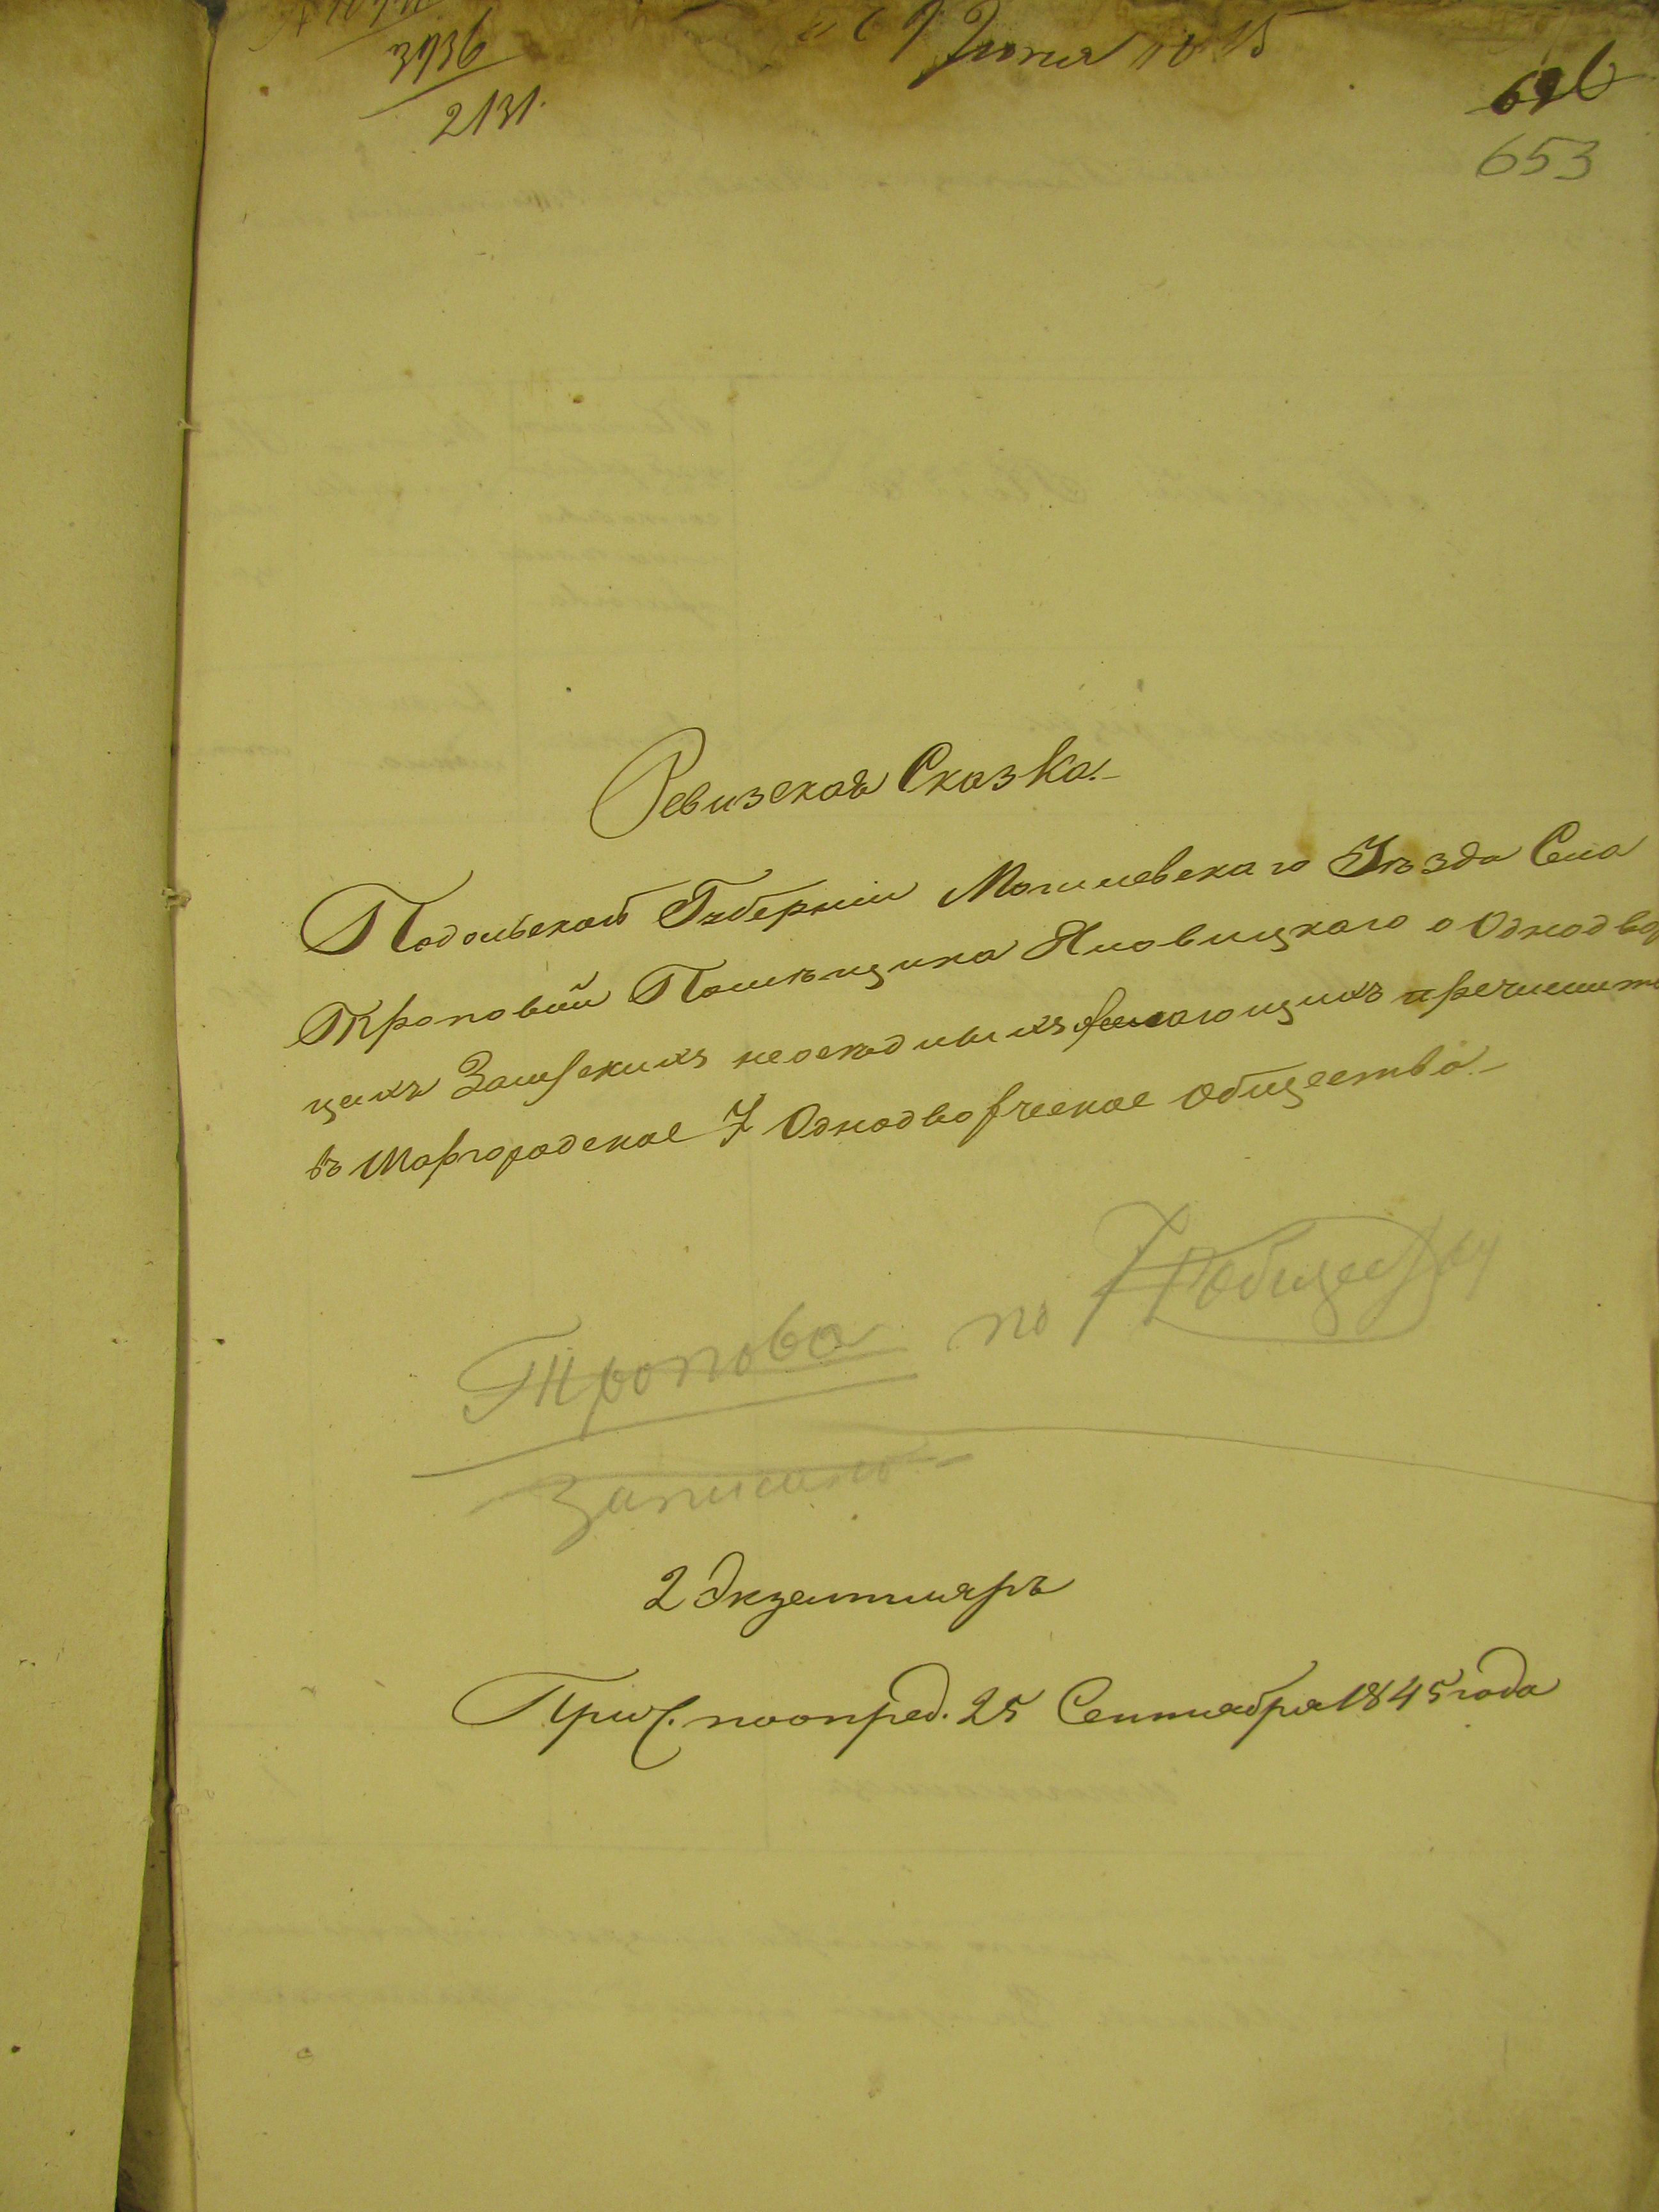 3436
2131.
Іюня
696
653
Ревизская Сказка.
Подольской Губерніи Могилевскаго Уѣзда Села
Троповой Помѣщика Яловицкаго о Однодвор
цахъ Заштскихъ неосѣдлыхъ
въ Шаргородское 7 Однодворческое Общество
Тропова по 7 Обществу
Записано
2 Экземпляръ
Прич. поопред. 25 Сентября 1845 года